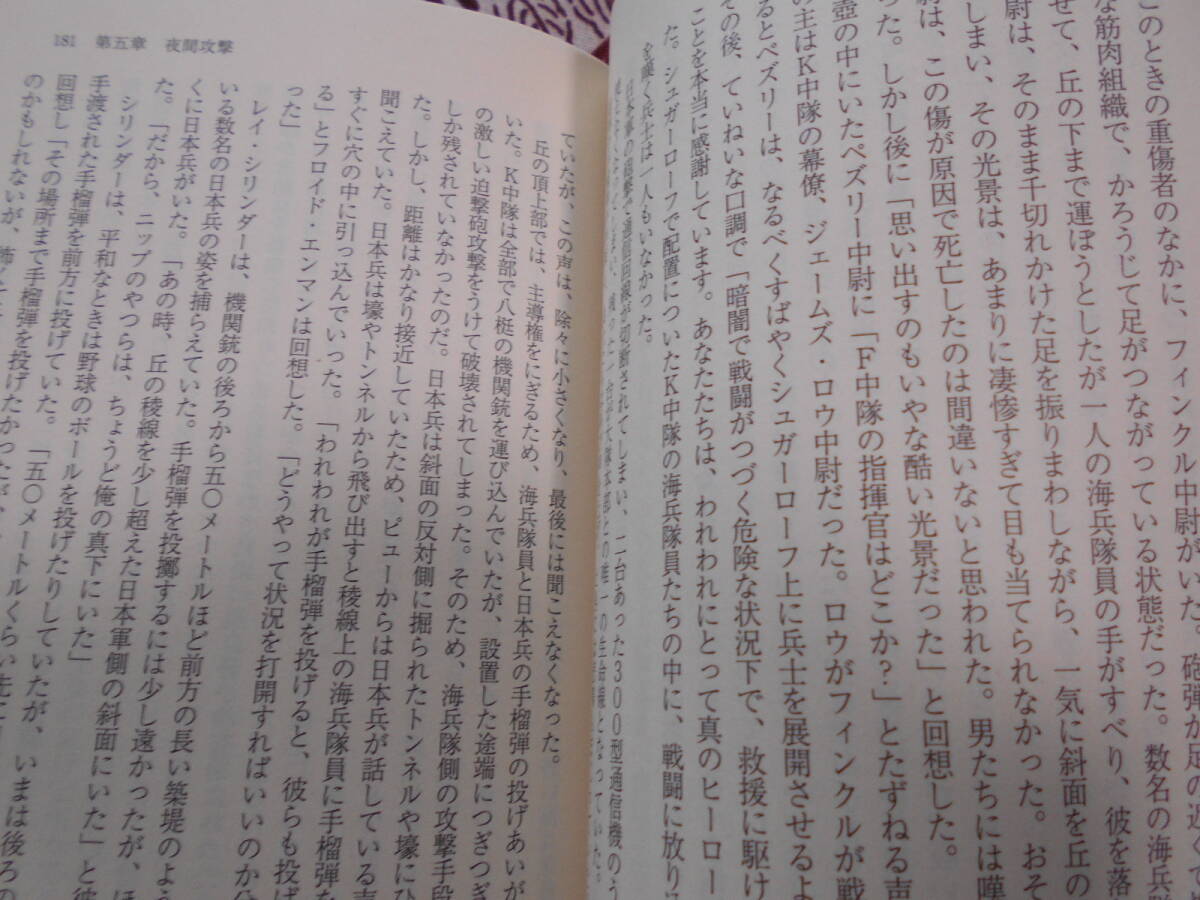 このときの重傷者のなかに、フィンクル中尉がいた。砲弾が足の近くで
な筋肉組織で、かろうじて足がつながっている状態だった。数名の海兵隊
せて、丘の下まで運ぼうとしたが一人の海兵隊員の手がすべり、彼を落
尉は、そのまま千切れかけた足を振りまわしながら、一気に斜面を丘の
しまい、その光景は、あまりに凄惨すぎて目も当てられなかった。おそ
尉は、この傷が原因で死亡したのは間違いないと思われた。男たちには嘆
った。しかし後に「思い出すのもいやな酷い光景だった」と回想した。
壺の中にいたペズリー中尉に「F中隊の指揮官はどこか？」とたずねる声
の主はK中隊の幕僚、ジェームズ・ロウ中尉だった。ロウがフィンクルが戦
るとペズリーは、なるべくすばやくシュガーローフ上に兵士を展開させるよ
その後、ていねいな口調で「暗闇で戦闘がつづく危険な状況下で、救援に駆け
ことを本当に感謝しています。あなたたちは、われわれにとって真のヒーロー
た。シュガーローフで配置についたK中隊の海兵隊員たちの中に、戦闘に放り
を嘆く兵士は一人もいなかった。
日本軍の砲撃で通信回線が切断されてしまい、二台あった300型通信機のう
ていたが、この声は、除々に小さくなり、最後には聞こえなくなった。
丘の頂上部では、主導権をにぎるため、海兵隊員と日本兵の手榴弾の投げあいが
いた。K中隊は全部で八梃の機関銃を運び込んでいたが、設置した途端につぎつぎ
の激しい迫撃砲攻撃をうけて破壊されてしまった。そのため、海兵隊側の攻撃手段
しか残されていなかったのだ。日本兵は斜面の反対側に掘られたトンネルや壕にひ
た。しかし、距離はかなり接近していたため、ピューからは日本兵が話している声
聞こえていた。日本兵は壕やトンネルから飛び出すと稜線上の海兵隊員に手榴弾を
すぐに穴の中に引っ込んでいった。「われわれが手榴弾を投げると、彼らも投げ
る」とフロイド・エンマンは回想した。「どうやって状況を打開すればいいのか分
った」
レイ・シリンダーは、機関銃の後ろから五〇メートルほど前方の長い築堤のよう
いる数名の日本兵の姿を捕らえていた。手榴弾を投擲するには少し遠かったが、ほ
くに日本兵がいた。「あの時、丘の稜線を少し超えた日本軍側の斜面にいた」と彼
た。「だから、ニップのやつらは、ちょうど俺の真下にいた」
シリンダーは、平和なときは野球のボールを投げたりしていたが、いまは後ろの
手渡された手榴弾を前方に投げていた。「五〇メートルくらい先に
回想し「その場所まで手榴弾を投げたかったが、
のかもしれないが、
181 第五章 夜間攻撃